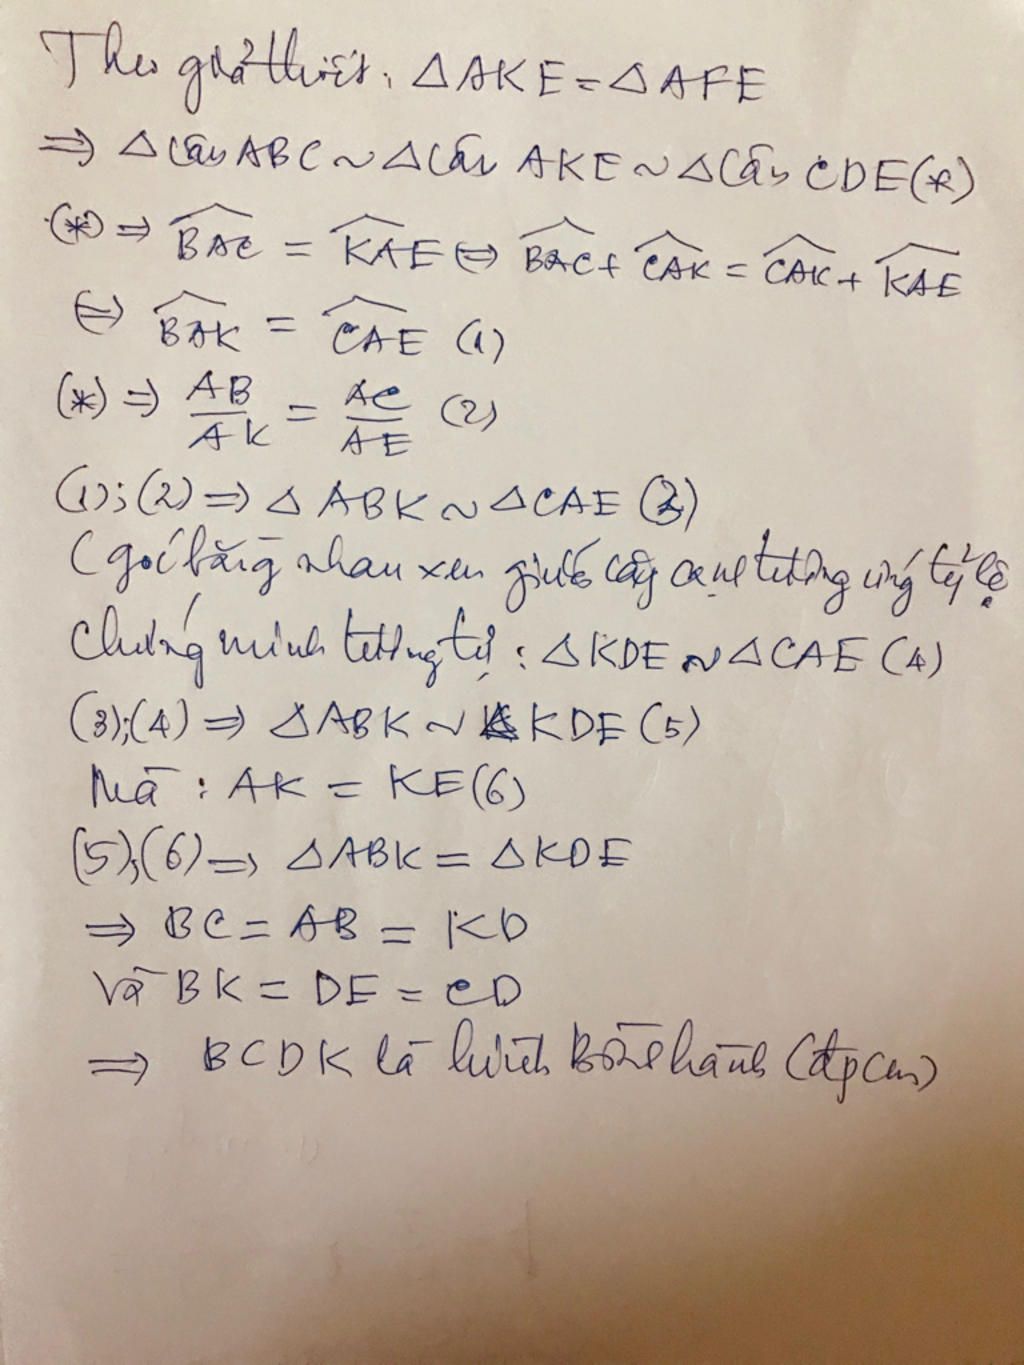 Theo giả thiết: △AKE = △AFE
⇒ △Cân ABC ~ △Cân AKE ~ △Cân CDE (*)
(*) ⇒ \widehat{BAC} = \widehat{KAE} ⇔ \widehat{BAC} + \widehat{CAK} = \widehat{CAK} + \widehat{KAE}
⇔ \widehat{BAK} = \widehat{CAE} (1)
(*) ⇒ AB/AK = AC/AE (2)
(1); (2) ⇒ △ABK ~ △CAE (3)
(góc bằng nhau xen giữa cặp cạnh tương ứng tỷ lệ
Chứng minh tương tự: △KDE ~ △CAE (4)
(3);(4) ⇒ △ABK ~ △KDE (5)
Mà : AK = KE (6)
(5);(6) ⇒ △ABK = △KDE
⇒ BC = AB = KD
Và BK = DE = CD
⇒ BCDK là hình Bình hành (đpcm)